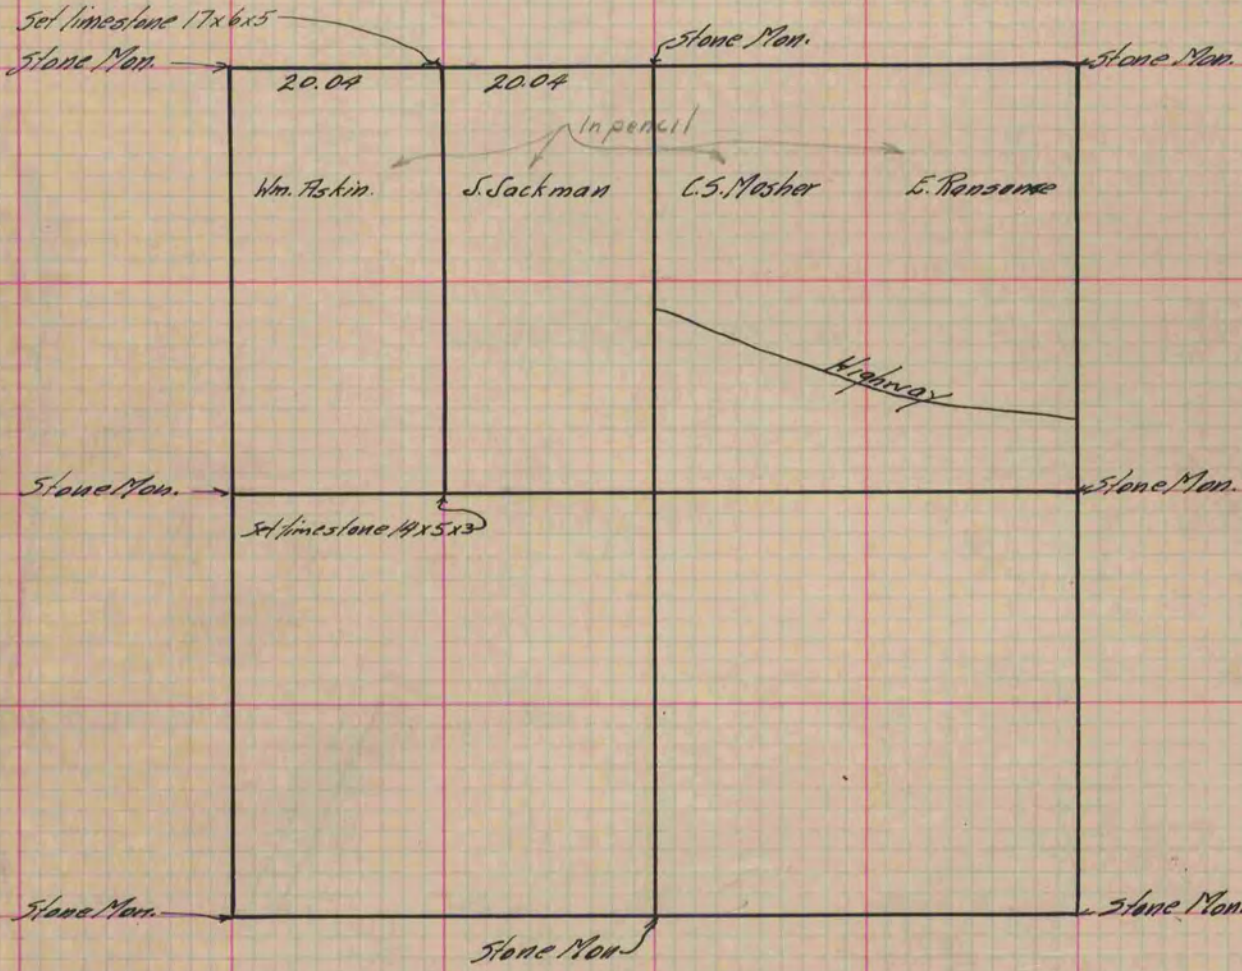 Set limestone 17x6x5
Stone Mon.
Stone Mon.
Stone Mon.
20.04
20.04
In pencil
Wm. Askin.
J. Jackman
C.S. Mosher
E. Ransome
Highway
Stone Mon.
Stone Mon.
Set limestone 14x5x3
Stone Mon.
Stone Mon.
Stone Mon.